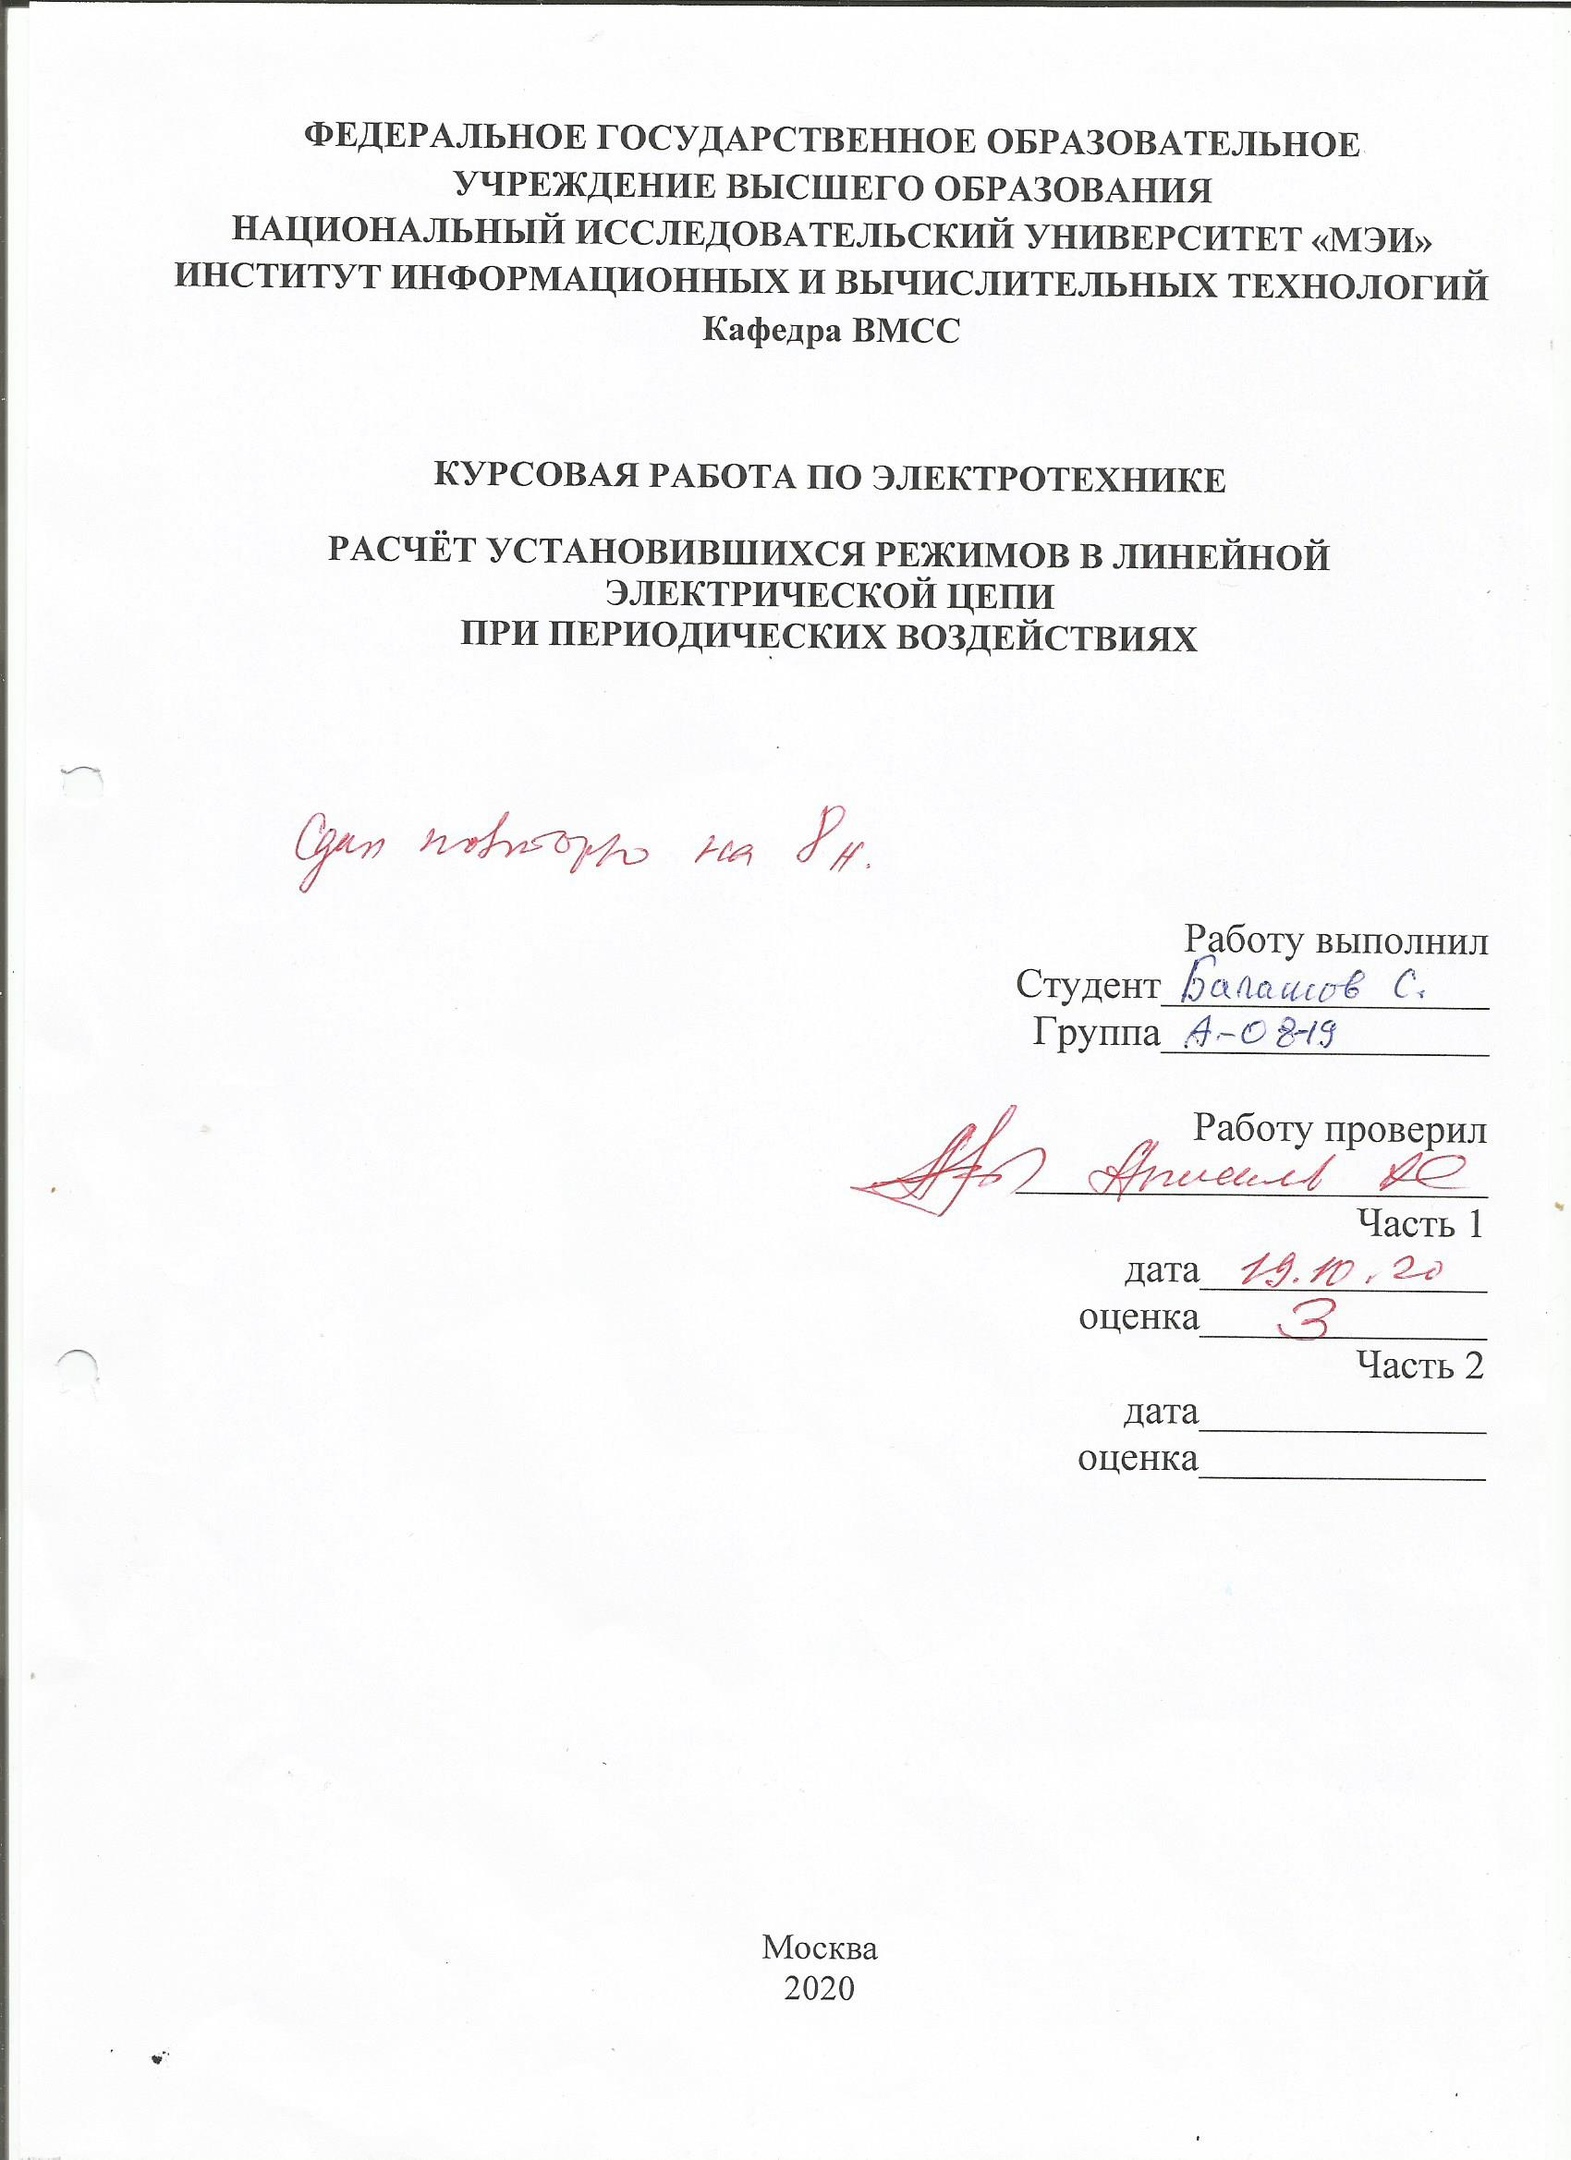 ФЕДЕРАЛЬНОЕ ГОСУДАРСТВЕННОЕ ОБРАЗОВАТЕЛЬНОЕ
УЧРЕЖДЕНИЕ ВЫСШЕГО ОБРАЗОВАНИЯ
НАЦИОНАЛЬНЫЙ ИССЛЕДОВАТЕЛЬСКИЙ УНИВЕРСИТЕТ «МЭИ»
ИНСТИТУТ ИНФОРМАЦИОННЫХ И ВЫЧИСЛИТЕЛЬНЫХ ТЕХНОЛОГИЙ
Кафедра ВМСС
КУРСОВАЯ РАБОТА ПО ЭЛЕКТРОТЕХНИКЕ
РАСЧЁТ УСТАНОВИВШИХСЯ РЕЖИМОВ В ЛИНЕЙНОЙ
ЭЛЕКТРИЧЕСКОЙ ЦЕПИ
ПРИ ПЕРИОДИЧЕСКИХ ВОЗДЕЙСТВИЯХ
Сдал повторно на 8 н.
Работу выполнил
Студент Балашов С.
Группа А-08-19
Работу проверил
Часть 1
дата 19.10.20
оценка 3
Часть 2
дата
оценка
Москва
2020